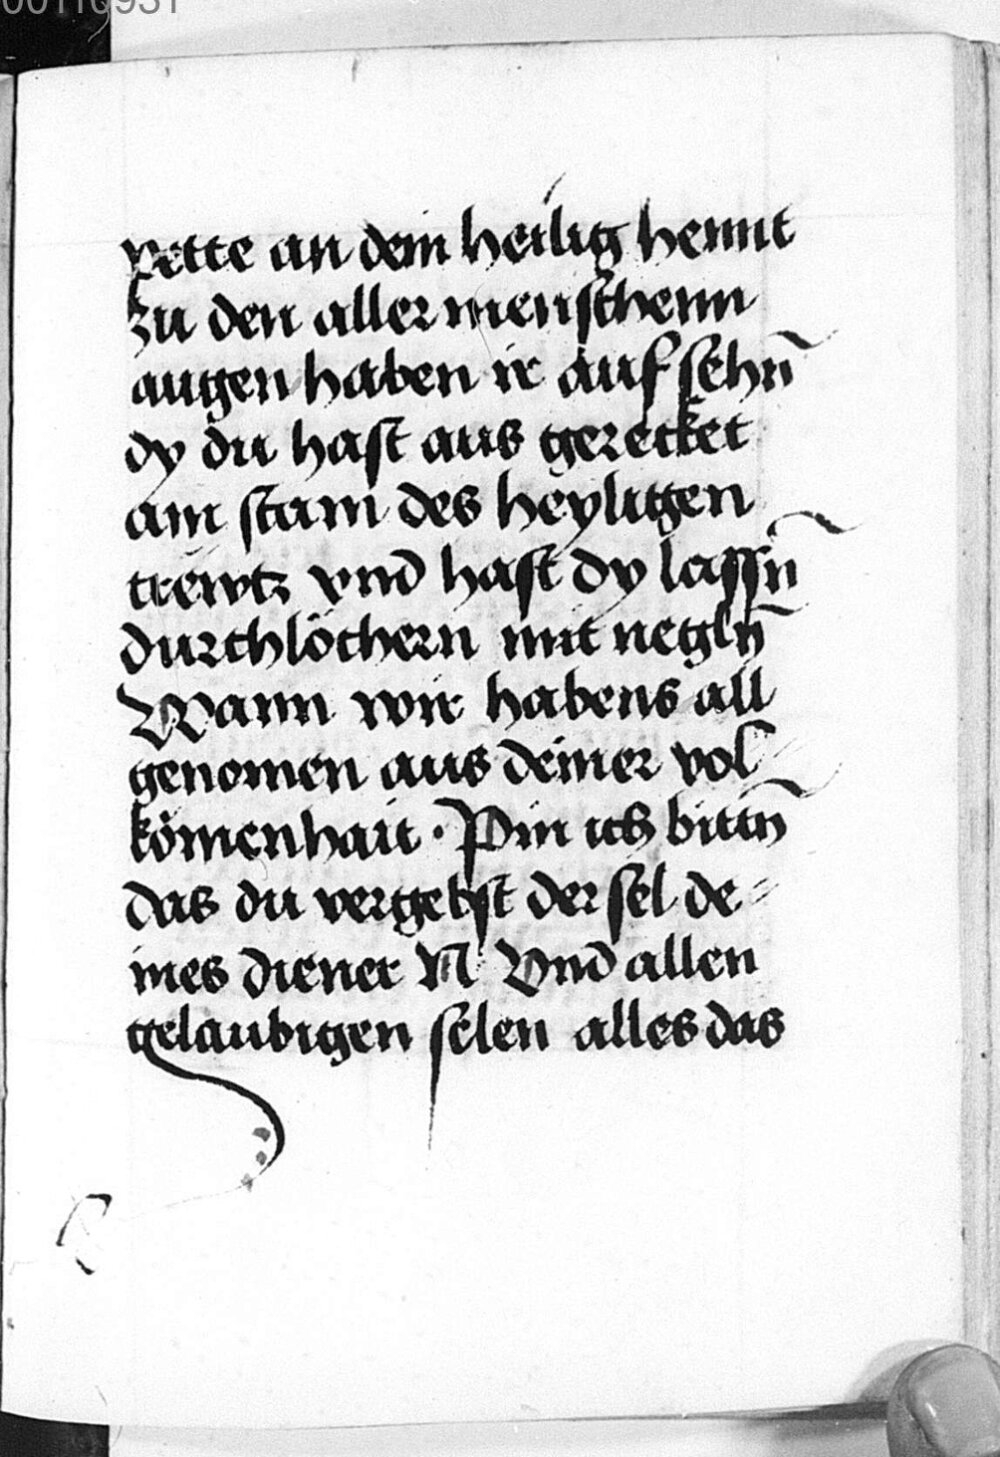 00110931
pette an dein heilig hennt
zu den aller menschenn
augen haben ir auf sehn̄
dy du hast aus gerecket
am stam des heyligen
crewtz vnd hast dy lassn̄
durchlöchern mit negln̄
Wann wir habens all
genomen aus deiner vol
kömenhait · Pin ich bittn̄
das du vergebst der sel de⸗
ines diener N Vnd allen
gelaubigen selen alles das